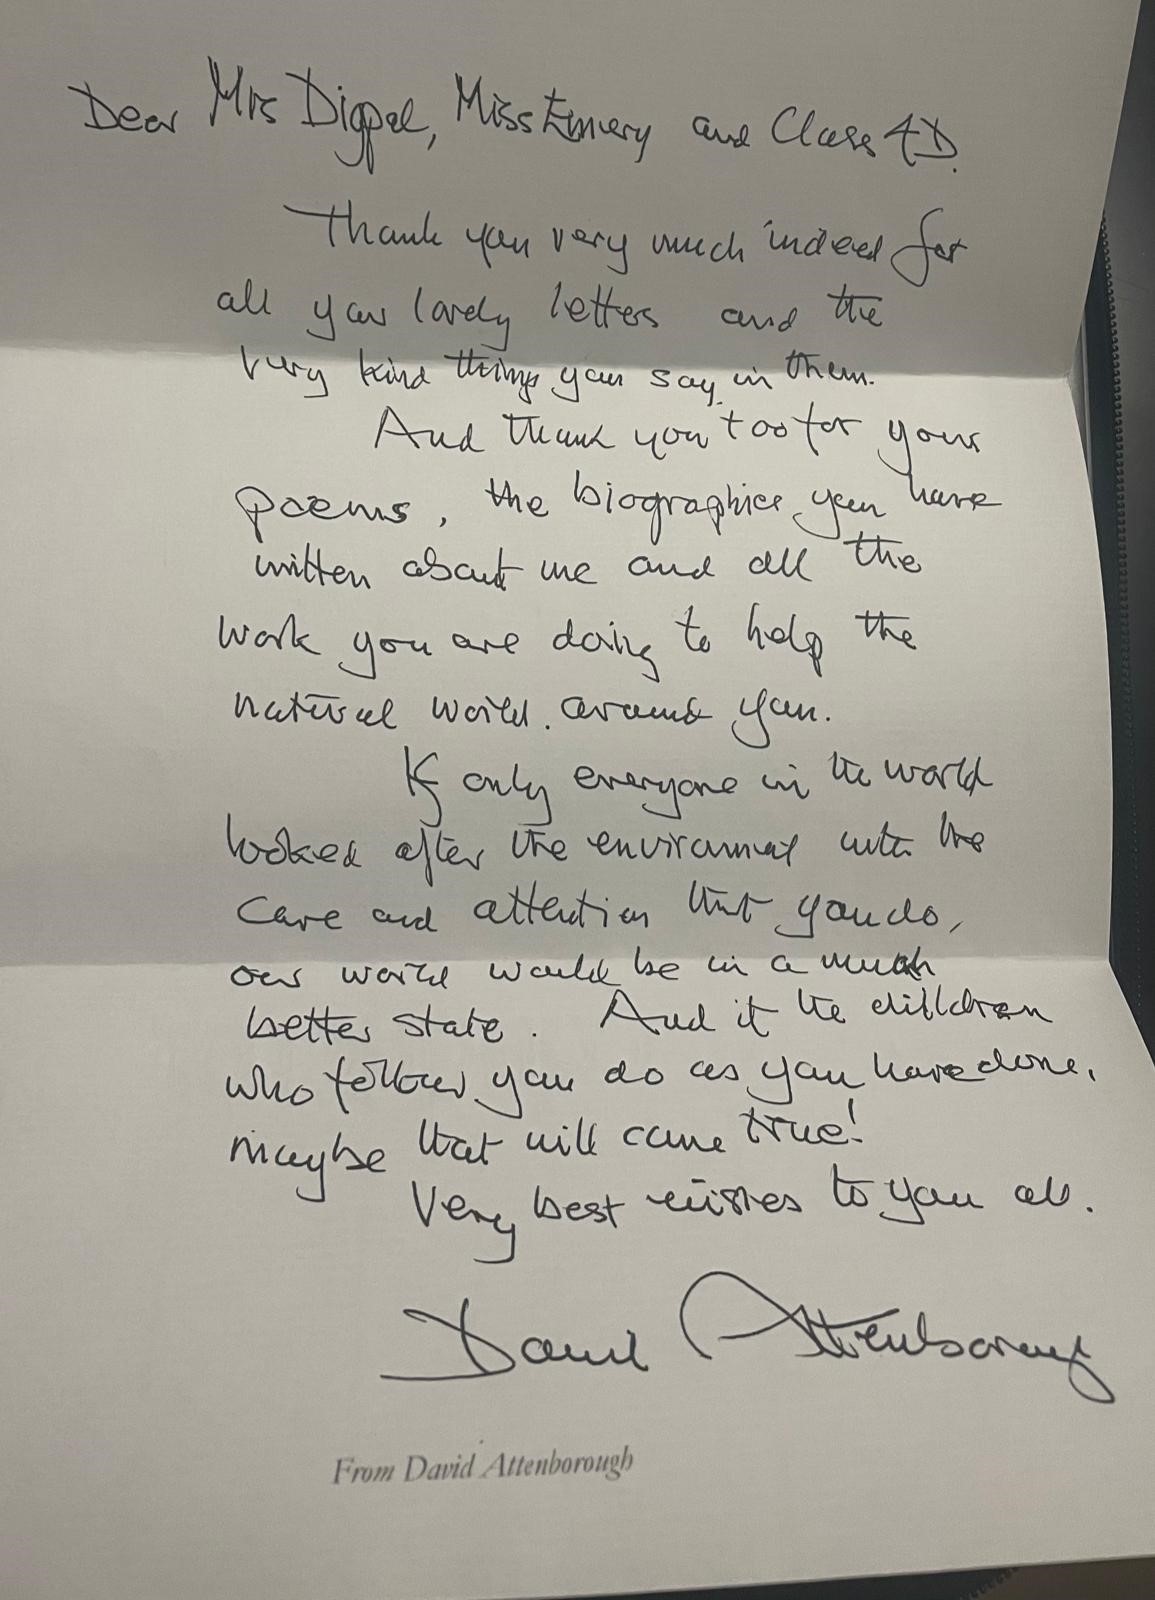 Dear Mrs Digpal, Miss Emery and Class 4D.
Thank you very much indeed for
all your lovely letters and the
very kind things you say in them.
And thank you too for your
poems, the biographies you have
written about me and all the
work you are doing to help the
natural world around you.
If only everyone in the world
looked after the environment with the
care and attention that you do,
our world would be in a much
better state. And if the children
who follow you do as you have done,
maybe that will come true!
Very best wishes to you all.
David Attenborough
From David Attenborough